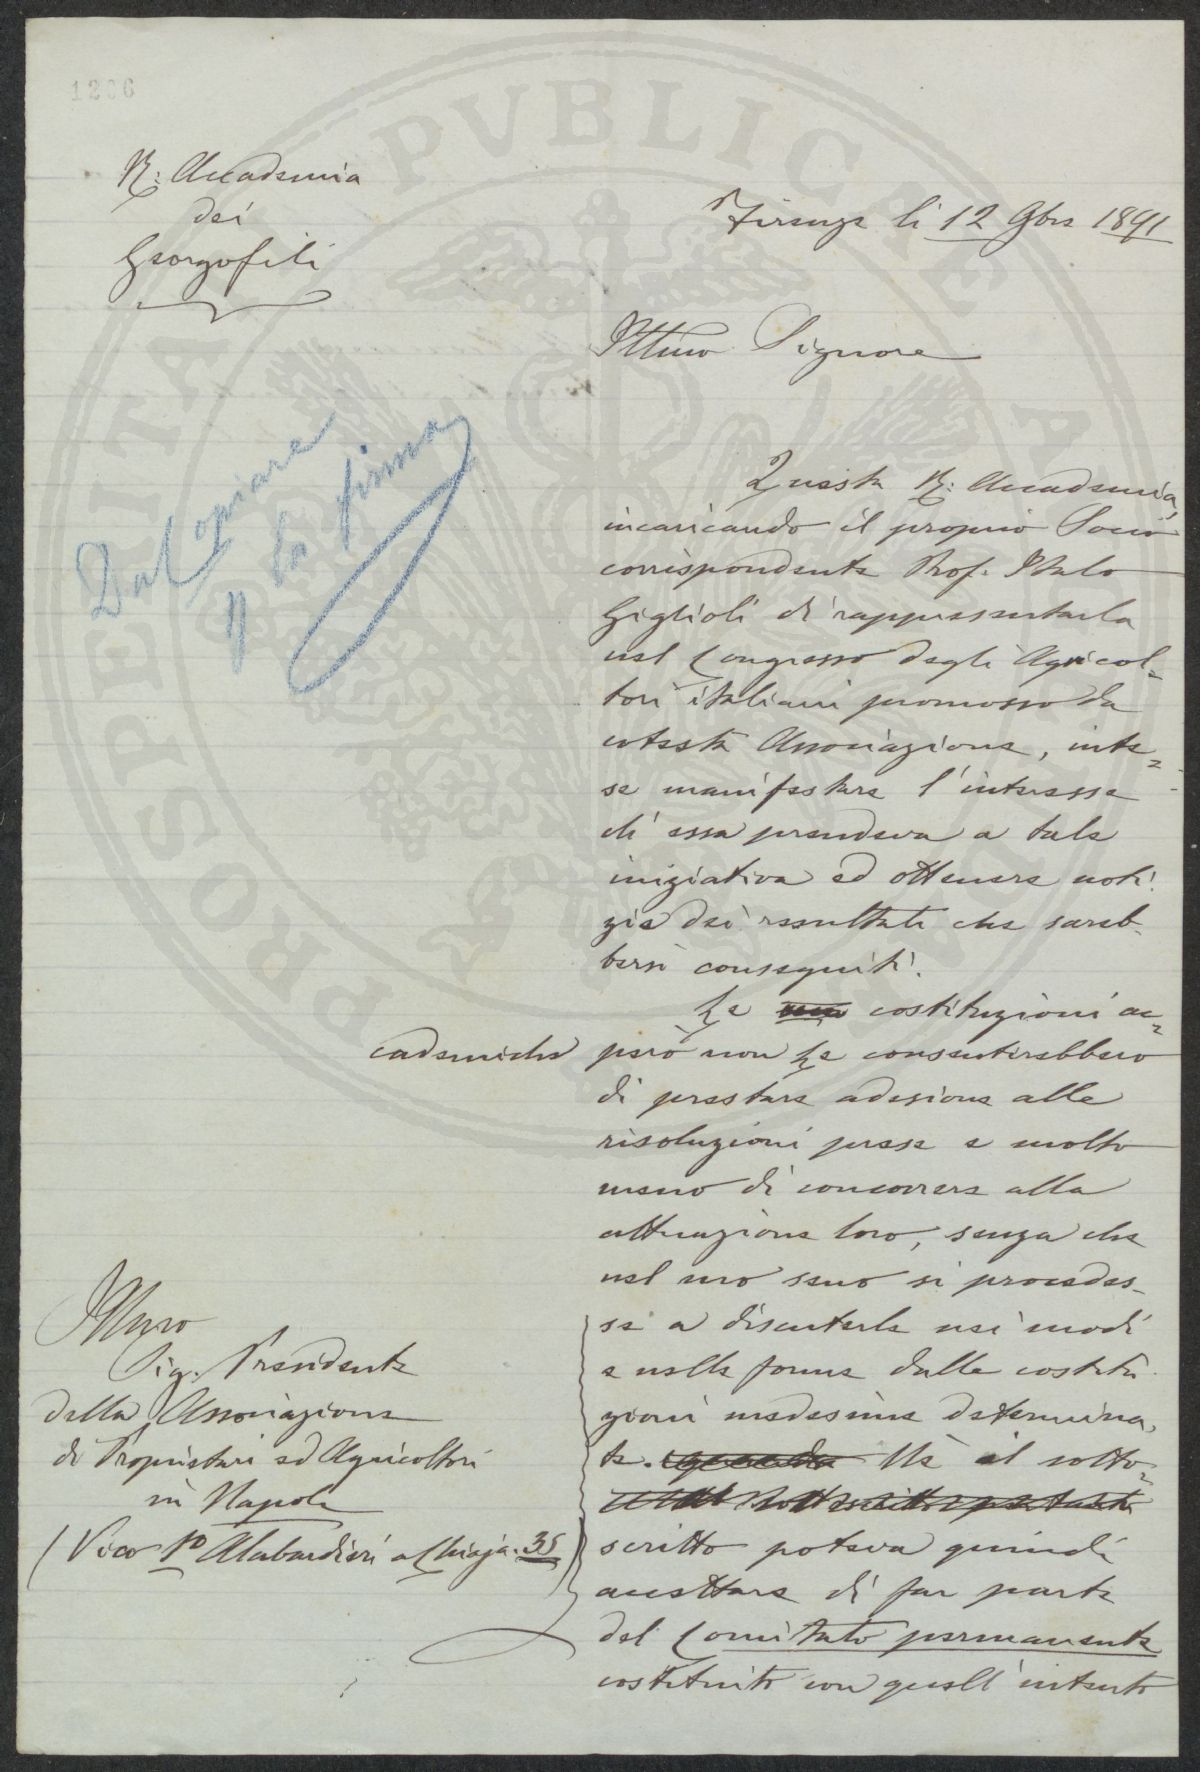 1206
R: Accademia
dei
Georgofili
Firenze li 12 9bre 1891
Illmo Signore
Da copiare
p la firma
Questa R: Accademia,
incaricando il proprio Socio
corrispondente Prof. Italo
Giglioli di rappresentarla
nel Congresso degli Agricol=
tori italiani promosso da
cotesta Associazione, inte=
se manifestare l'interesse
ch'essa prendeva a tale
iniziativa ed ottenere noti-
zie dei resultati che sareb-
bersi conseguiti.
Le costituzioni ac=
cademiche però non le consentirebbero
di prestare adesione alle
risoluzioni prese e molto
meno di concorrere alla
attuazione loro, senza che
nel suo seno si procedes-
se a discuterle nei modi
e nelle forme dalle costitu-
zioni medesime determina-
te. Nè il sotto=
scritto poteva quindi
accettare di far parte
del Comitato permanente
costituito con quell'intento
Illmo
Sig. Presidente
della Associazione
di Proprietari ed Agricoltori
in Napoli
(Vico 1º Alabardieri a Chiaja. 35)
PROSPERITA PVBLICAE AVGENDAE